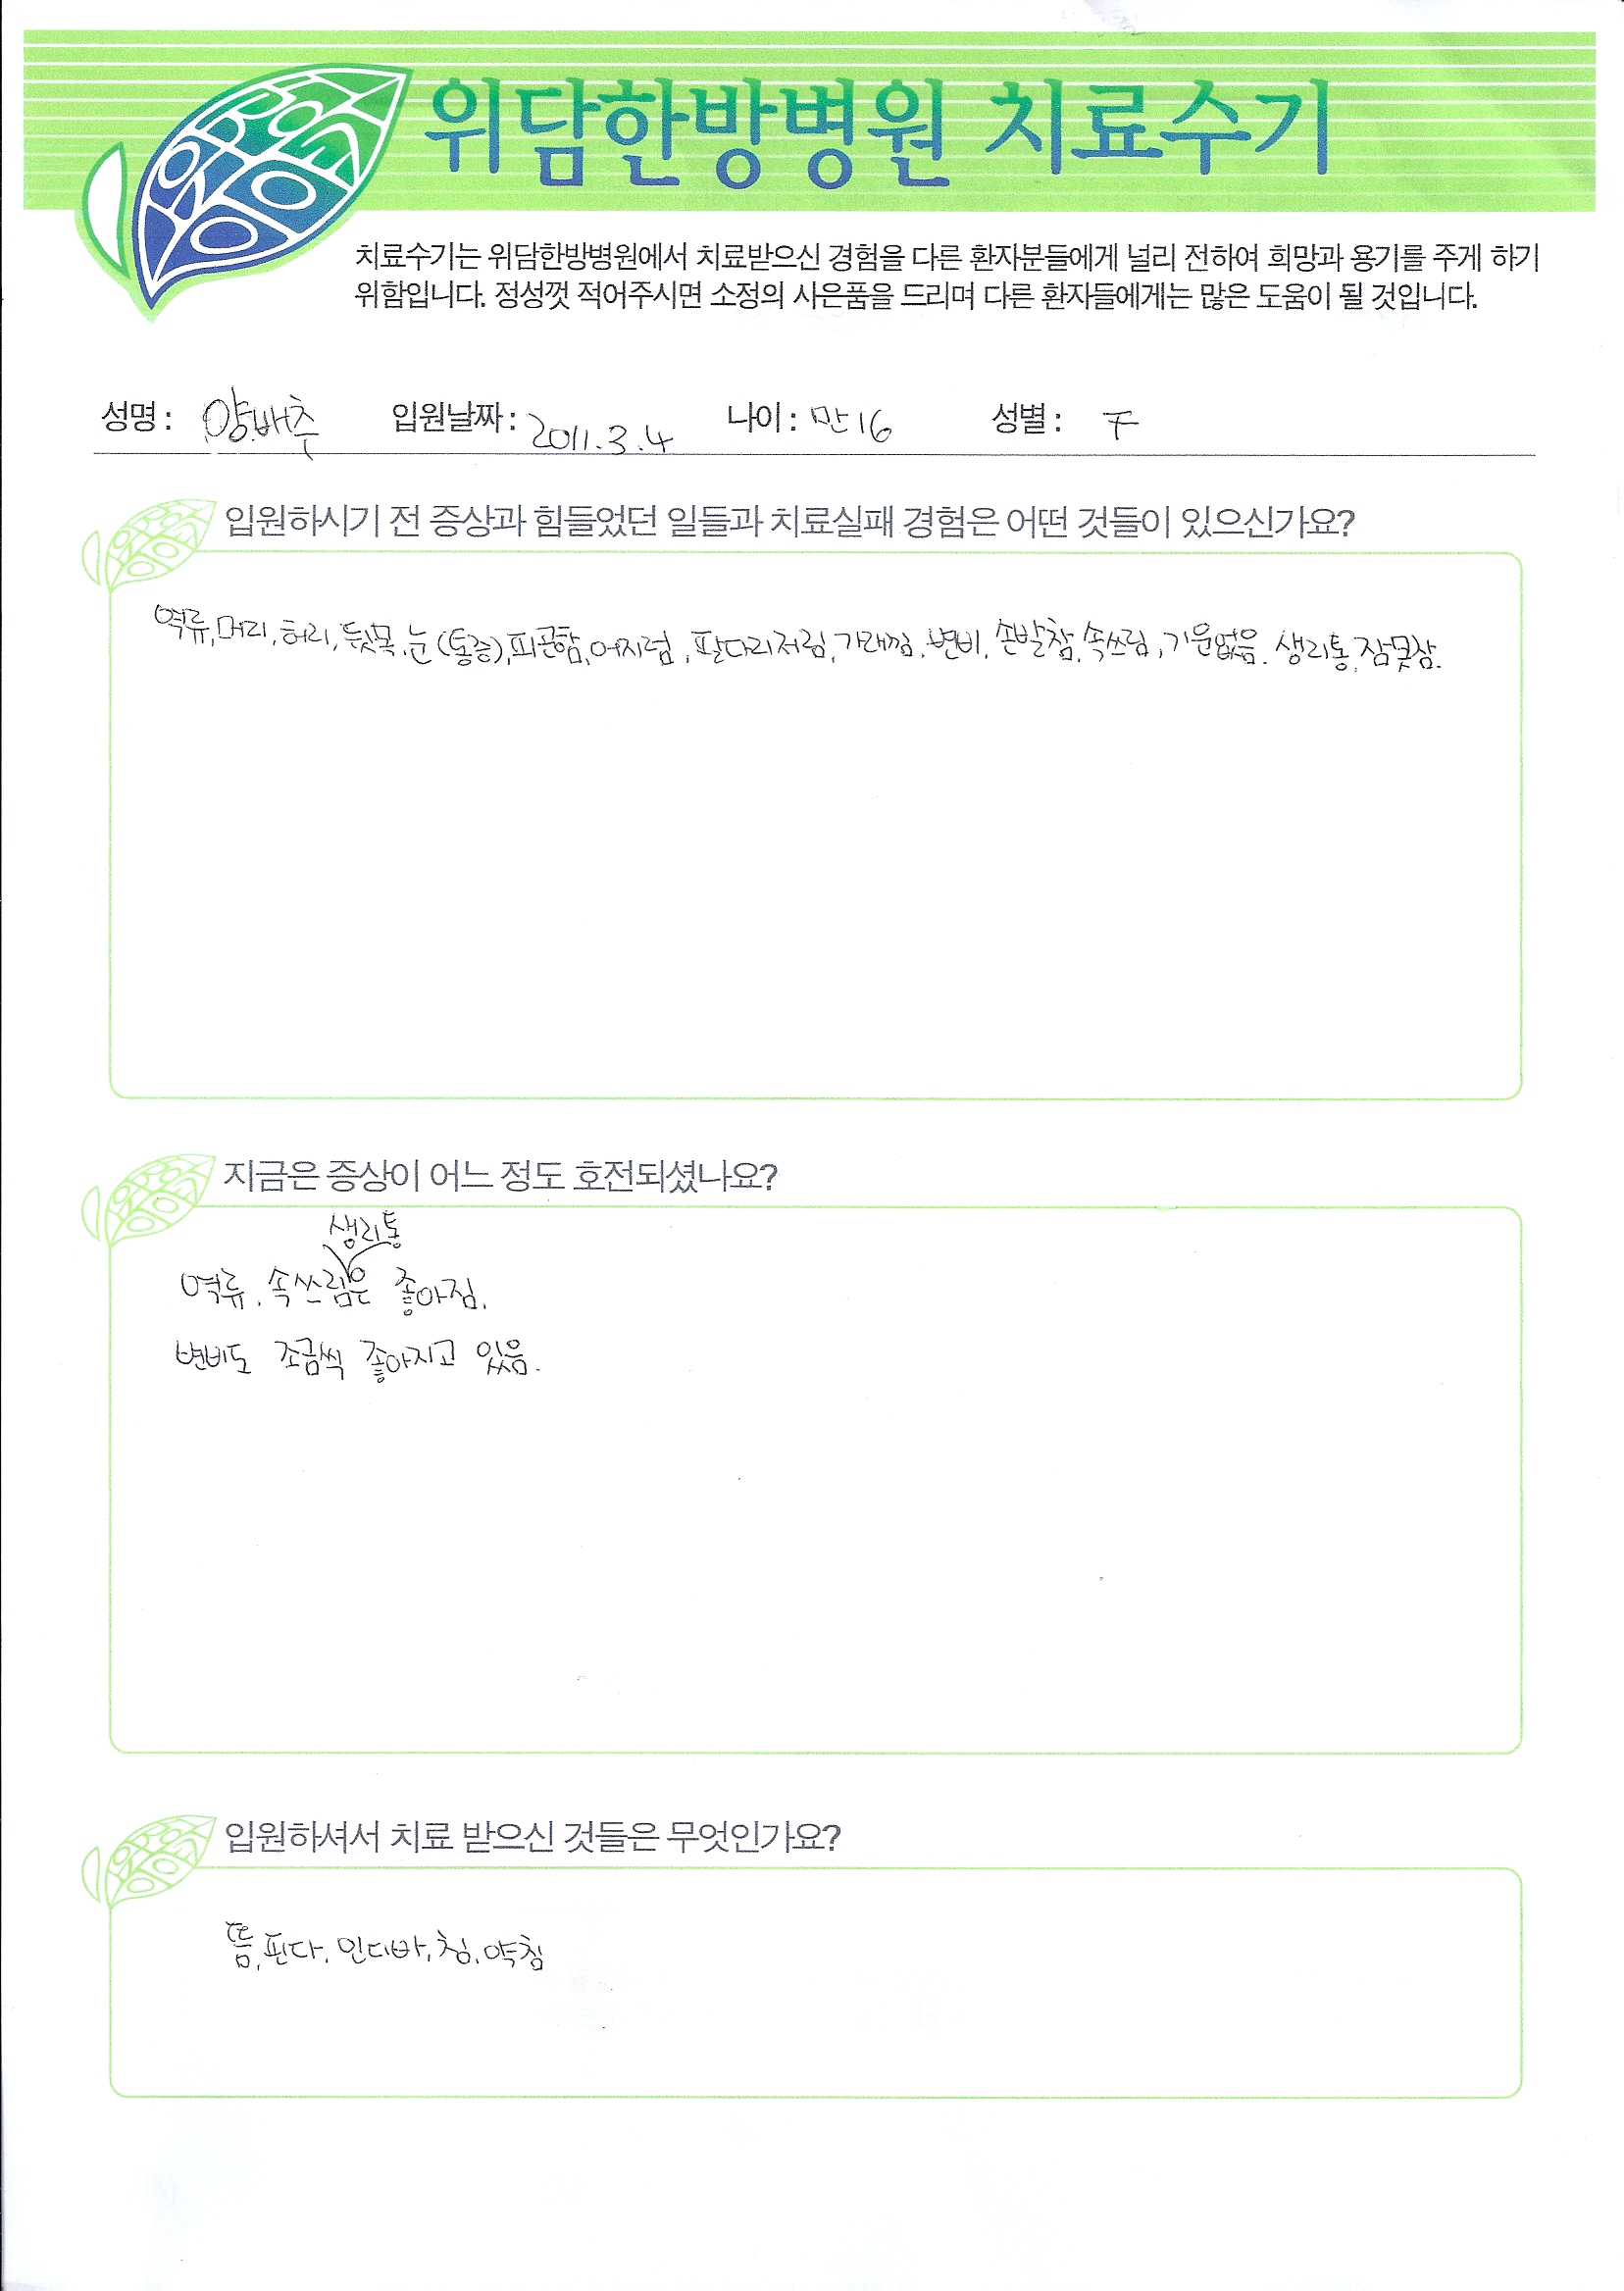 위담한방병원 치료수기
치료수기는 위담한방병원에서 치료받으신 경험을 다른 환자분들에게 널리 전하여 희망과 용기를 주게 하기
위함입니다. 정성껏 적어주시면 소정의 사은품을 드리며 다른 환자들에게는 많은 도움이 될 것입니다.
성명 : 양배추 입원날짜 : 2011.3.4 나이 : 만16 성별 : F
입원하시기 전 증상과 힘들었던 일들과 치료실패 경험은 어떤 것들이 있으신가요?
역류, 머리, 허리, 뒷목, 눈(통증), 피곤함, 어지럼, 팔다리저림, 가래낌, 변비, 손발참, 속쓰림, 기운없음. 생리통, 잠못잠.
지금은 증상이 어느 정도 호전되셨나요?
생리통
역류, 속쓰림은 좋아짐.
변비도 조금씩 좋아지고 있음.
입원하셔서 치료 받으신 것들은 무엇인가요?
뜸, 핀다, 인디바, 침, 약침